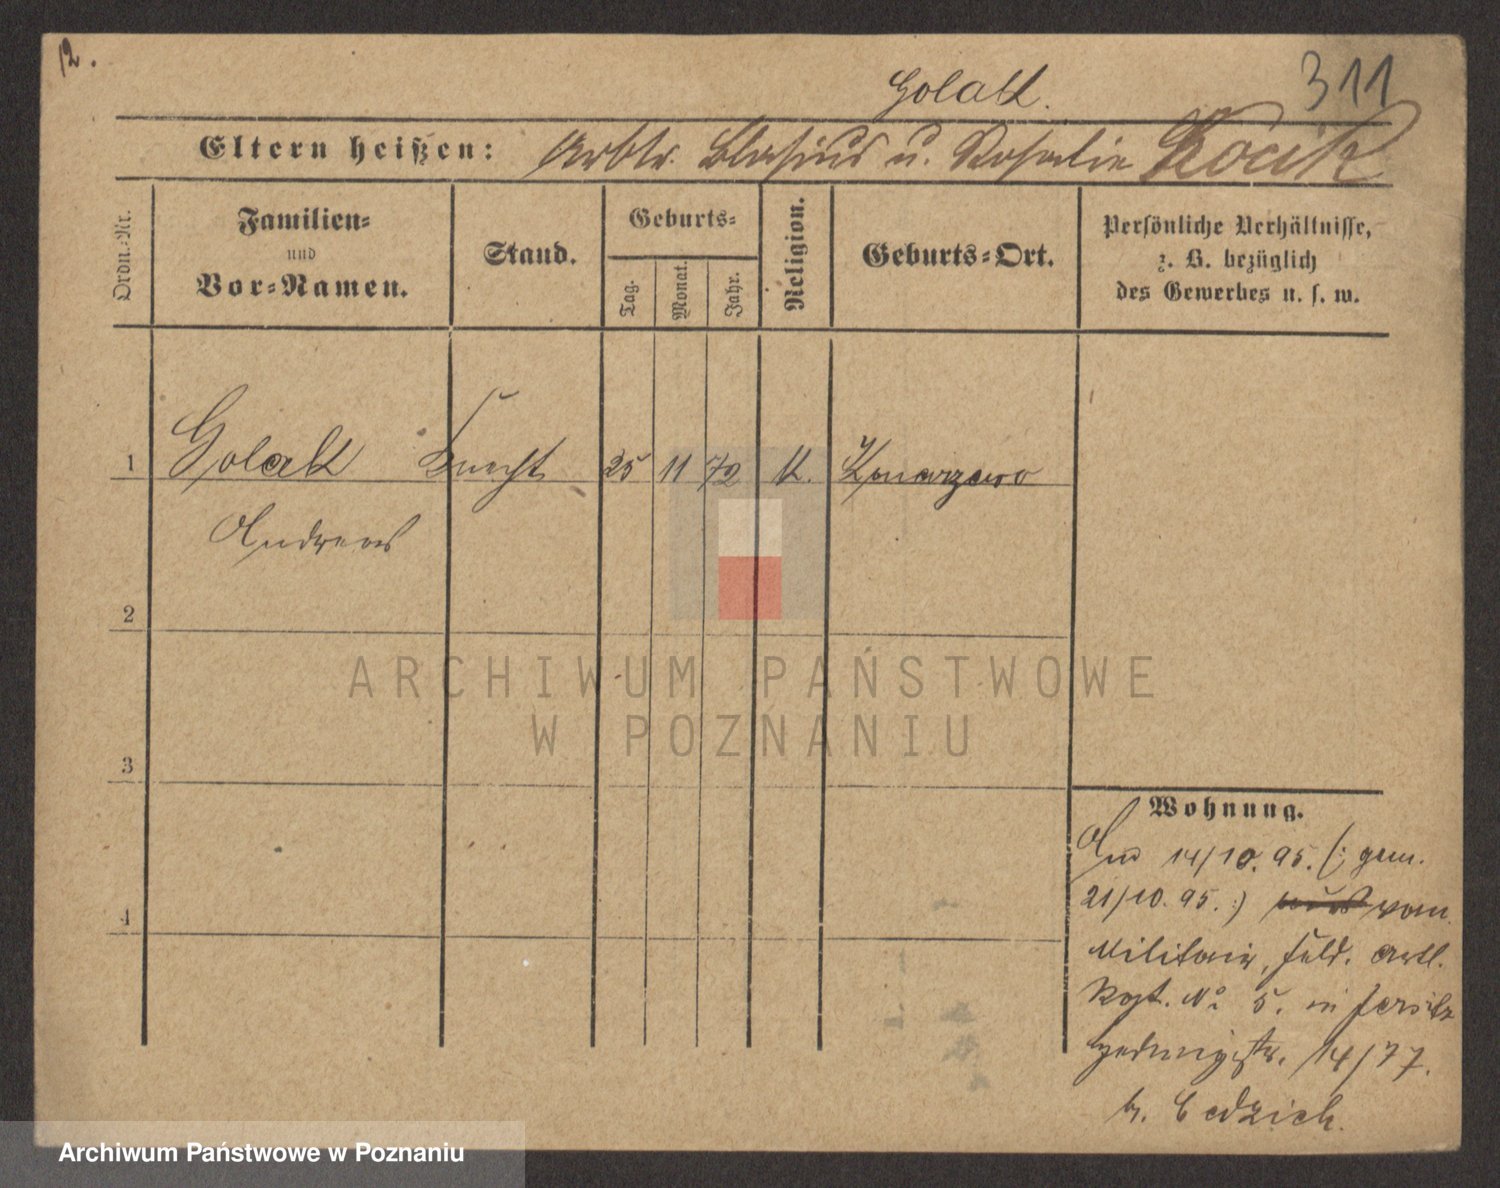 12.
311
Golatk.
Eltern heißen: Arbtr. Blasius u. Rosalie Kocik
Ordn.-Nr.
Familien-
und
Vor-Namen.
Stand.
Geburts-
Tag.
Monat.
Jahr.
Religion.
Geburts-Ort.
Persönliche Verhältnisse,
z. B. bezüglich
des Gewerbes u. s. w.
1 Golatk Knecht 25 11 72 K. Konarzewo
Andreas
2
3
4
ARCHIWUM PAŃSTWOWE
W POZNANIU
Wohnung.
14/10. 95. (: gem.
21/10. 95. :) vom
Militair, Feld. Artl.
Rgt. No 5. in Jersitz
Hedwigstr. 14/77.
b. Cedzich.
Archiwum Państwowe w Poznaniu